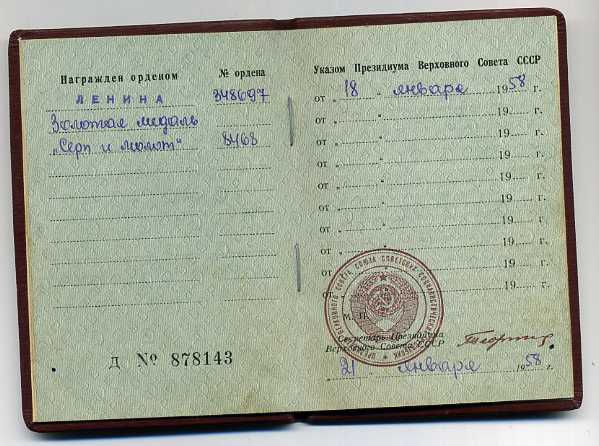 Награжден орденом
№ ордена
ЛЕНИНА
348697
Золотая медаль
„Серп и молот“
8468
Д № 878143
Указом Президиума Верховного Совета СССР
от „ 18 „ января 1958 г.
от „ „ 19 г.
от „ „ 19 г.
от „ „ 19 г.
от „ „ 19 г.
от „ „ 19 г.
от „ „ 19 г.
от „ „ 19 г.
от „ „ 19 г.
от 19 г.
М. П.
Секретарь Президиума
Верховного Совета СССР
„ 21 „ января 1958 г.